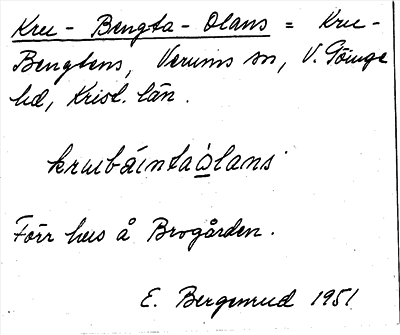 Kru - Bengta - Olans = Kru -
Bengtens, Verums sn, V. Göinge
hd, Krist. län.
krubäintaòlans
Förr hus å Brogården.
E. Bergenrud 1951